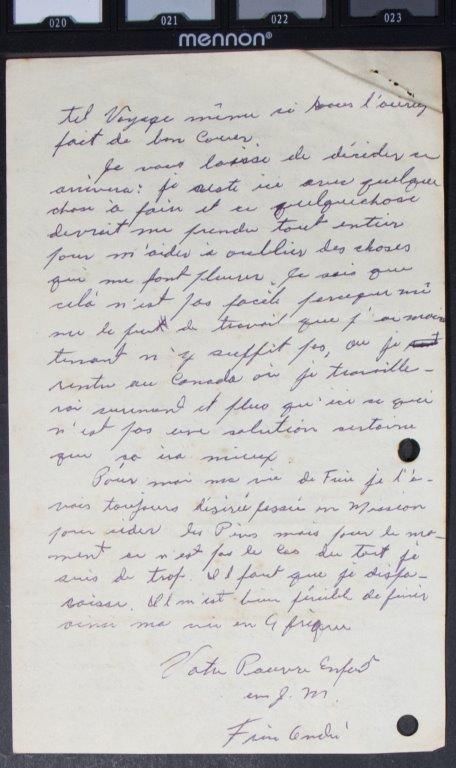 020 021 022 023
mennon®
tel Voyage même si vous l'auriez
fait de bon Coeur
Je vous laisse de décider ce
arrivera: je reste ici avec quelque
chose à fair et ce quelquechose
devrait me prendre tout entier
pour m'aider à oublier des choses
qui me font pleurer. Je sais que
celà n'est pas facile parceque mê
me le peut de travail que j'ai main
tenant n'y suffit pas, ou je
rentre au Canada où je travaille-
rai surement et plus qu'ici ce qui
n'est pas une solution certaine
que sa ira mieux
Pour moi ma vie de Frère je l'a-
vais toujours désirée passée en Mission
pour aider les Pères mais pour le mo-
ment ce n'est pas le cas du tout je
suis de trop. Il faut que je dispa-
raisse. Il m'est bien pénible de finir
ainsi ma vie en Afrique
Votre Pauvre Enfant
en J. M.
Frère André